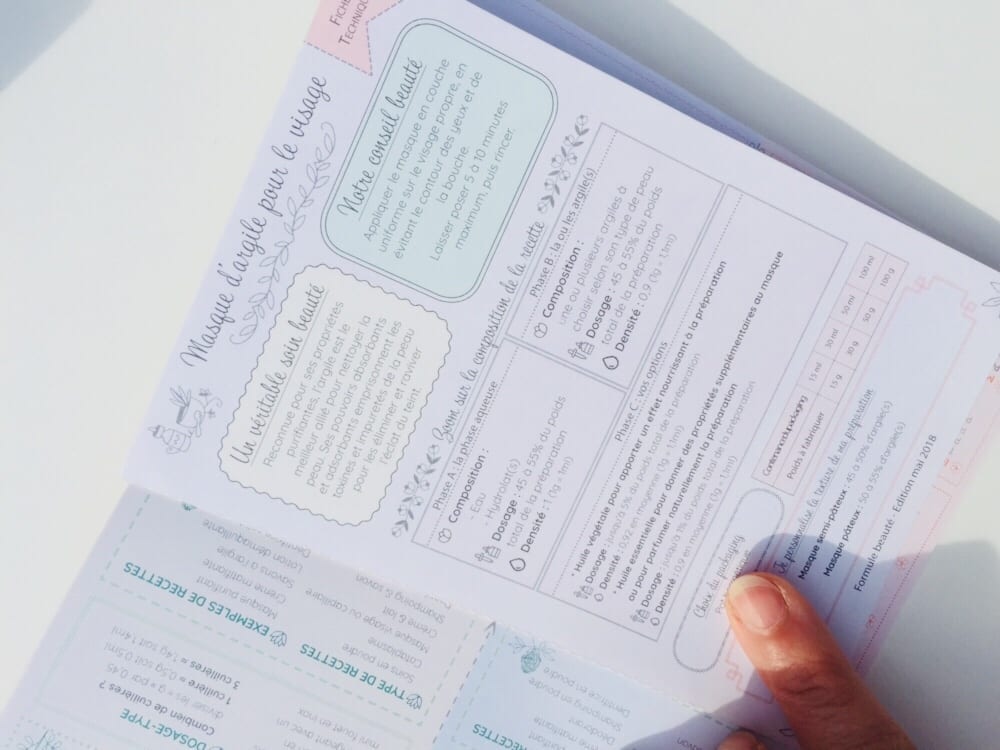 FICHE
TECHNIQUE
Masque d'argile pour le visage
Un véritable soin beauté
Reconnue pour ses propriétés
purifiantes, l'argile est le
meilleur allié pour nettoyer la
peau. Ses pouvoirs absorbants
et adsorbants emprisonnent les
toxines et impuretés de la peau
pour les éliminer et raviver
l'éclat du teint.
Notre conseil beauté
Appliquer le masque en couche
uniforme sur le visage propre, en
évitant le contour des yeux et de
la bouche.
Laisser poser 5 à 10 minutes
maximum, puis rincer.
Zoom sur la composition de la recette
Phase A : la phase aqueuse
Composition :
- Eau
- Hydrolat(s)
Dosage : 45 à 55% du poids
total de la préparation
Densité : 1 (1g = 1ml)
Phase B : la ou les argile(s)
Composition :
une ou plusieurs argiles à
choisir selon son type de peau
Dosage : 45 à 55% du poids
total de la préparation
Densité : 0,9 (1g = 1,1ml)
Phase C : vos options
* Huile végétale pour apporter un effet nourrissant à la préparation
Dosage : jusqu'à 5% du poids total de la préparation
Densité : 0,92 en moyenne (1g = 1,1ml)
* Huile essentielle pour donner des propriétés supplémentaires au masque
ou pour parfumer naturellement la préparation
Dosage : jusqu'à 1% du poids total de la préparation
Densité : 0,9 en moyenne (1g = 1,1ml)
Choix du packaging
Contenance du packaging 15 ml 30 ml 50 ml 100 ml
Poids à fabriquer 15 g 30 g 50 g 100 g
Je personnalise la texture de ma préparation
Masque semi-pâteux : 45 à 50% d'argile(s)
Masque pâteux : 50 à 55% d'argile(s)
Formule beauté - Edition mai 2018
DOSAGE-TYPE
Combien de cuillères ?
diviser les g par 0,45
1 cuillère = 0,45g soit 0,5ml
3 cuillères = 1,4g soit 1,4ml
mini fouet en inox
TYPE DE RECETTES
Soins en poudre
Cataplasme
Masque visage ou capillaire
Crème & lait
Shampoing & savon
EXEMPLES DE RECETTES
Masque purifiant
Crème matifiante
Savons à l'argile
Lotion démaquillante
Dentifrice en poudre
Shampoing en poudre